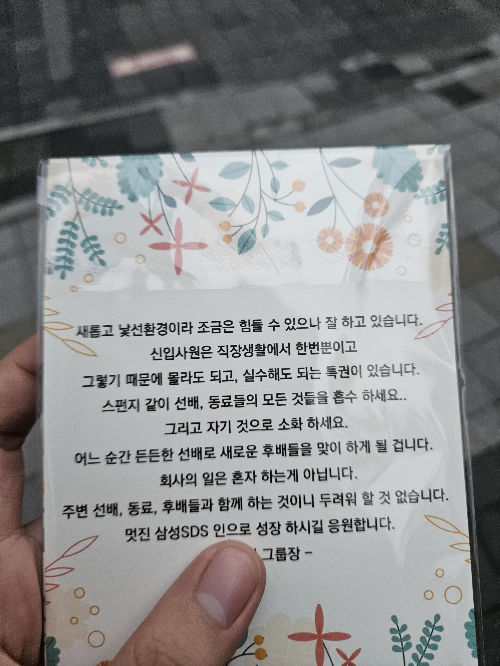 새롭고 낯선환경이라 조금은 힘들 수 있으나 잘 하고 있습니다.
신입사원은 직장생활에서 한번뿐이고
그렇기 때문에 몰라도 되고, 실수해도 되는 특권이 있습니다.
스펀지 같이 선배, 동료들의 모든 것들을 흡수 하세요..
그리고 자기 것으로 소화 하세요.
어느 순간 든든한 선배로 새로운 후배들을 맞이 하게 될 겁니다.
회사의 일은 혼자 하는게 아닙니다.
주변 선배, 동료, 후배들과 함께 하는 것이니 두려워 할 것 없습니다.
멋진 삼성SDS 인으로 성장 하시길 응원합니다.
그룹장 –